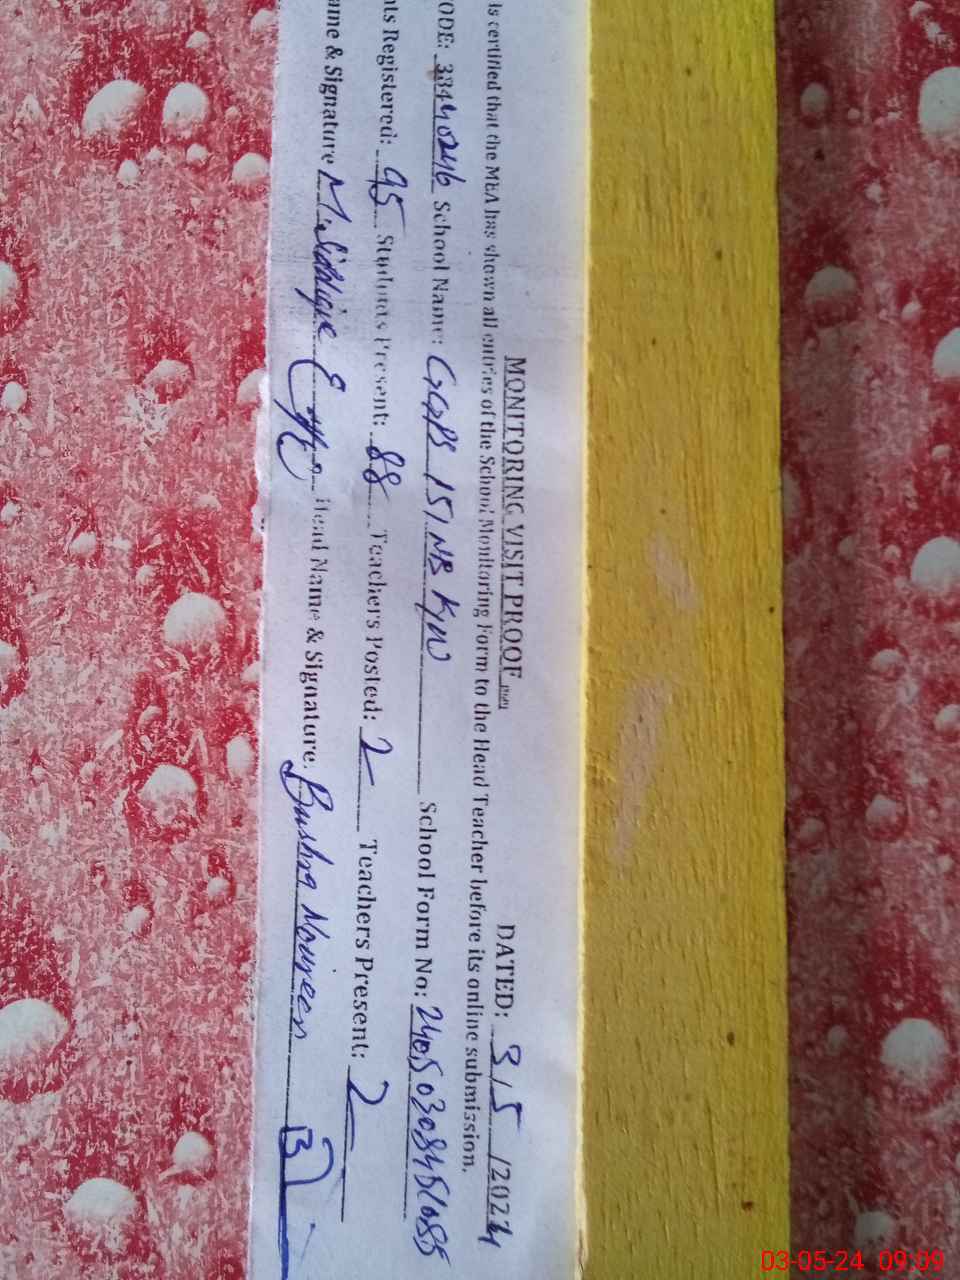 MONITORING VISIT PROOF DATED: 3/5/2024
is certified that the MEA has shown all entries of the School Monitoring Form to the Head Teacher before its online submission.
ODE: 38440246 School Name: GGPS 151 NB KW School Form No:
nts Registered: 95 Students Present: 88 Teachers Posted: 2 Teachers Present: 2
ame & Signature M. Siddique Head Name & Signature: Bushra Noureen
03-05-24 09:09